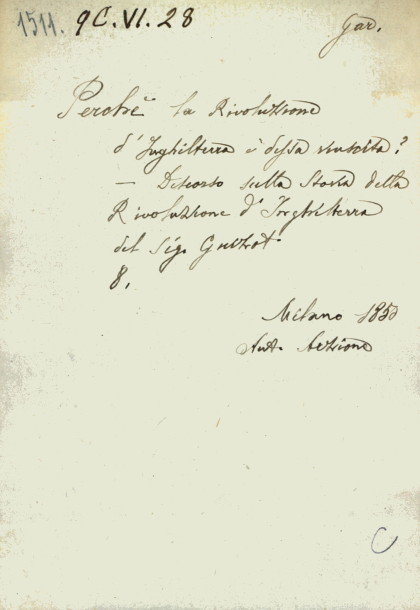 1511. 9C.VI.28
Gar.
Perchè la Rivoluzione
d'Inghilterra è dessa riuscita?
— Discorso sulla Storia della
Rivoluzione d'Inghilterra
del Sig. Guizot
8.
Milano 1850
C